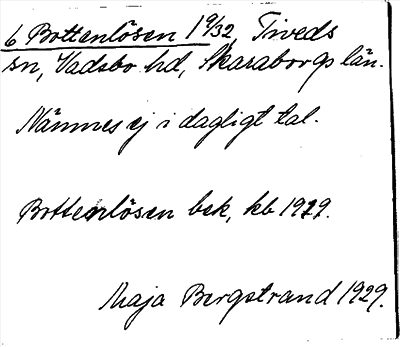 6 Bottenlösen 19/32, Tiveds
sn, Vadsbo hd, Skaraborgs län.
Nämnes ej i dagligt tal.
Bottenlösen bek, kb 1929.
Maja Bergstrand 1929.